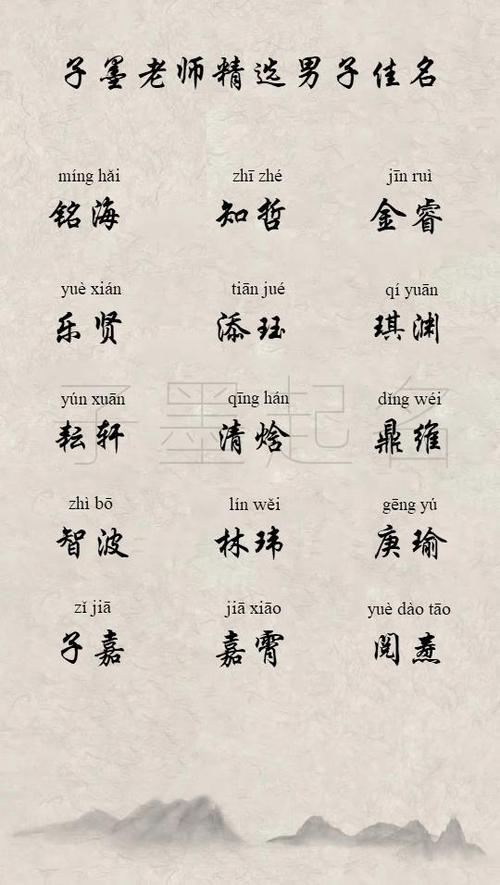 子墨老师精选男子佳名
míng hǎi zhī zhé jīn ruì
铭海 知哲 金睿
yuè xián tiān jué qí yuān
乐贤 添珏 琪渊
yún xuān qīng hán dǐng wéi
耘轩 清焓 鼎维
子墨起名
zhì bō lín wěi gēng yú
智波 林玮 庚瑜
zǐ jiā jiā xiāo yuè dào tāo
子嘉 嘉霄 阅焘